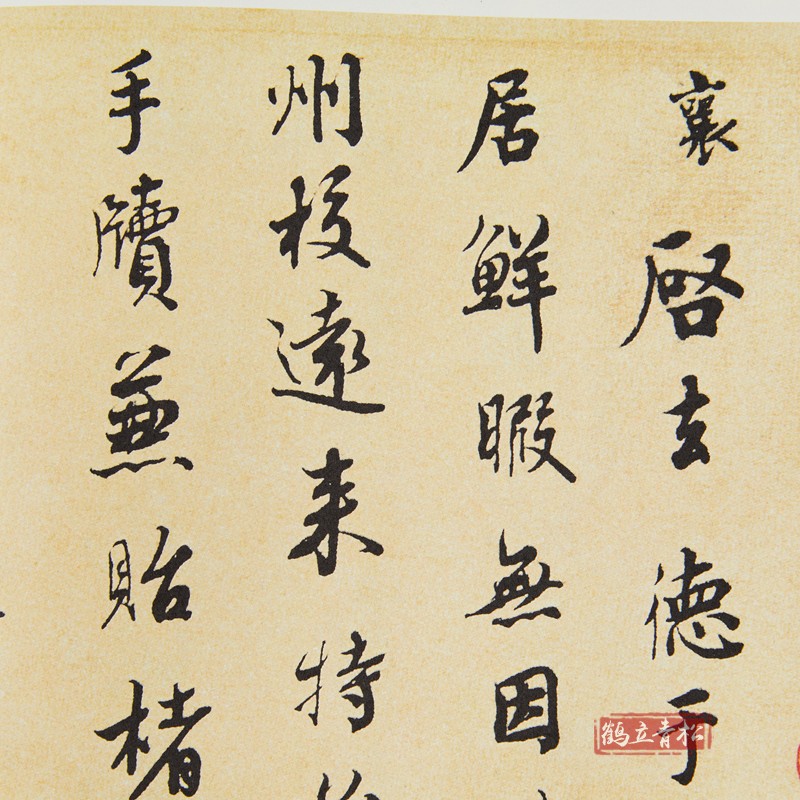 襄啓去德于
居鮮暇無因
州校遠来特
手牘兼貽楮
鹤立青松